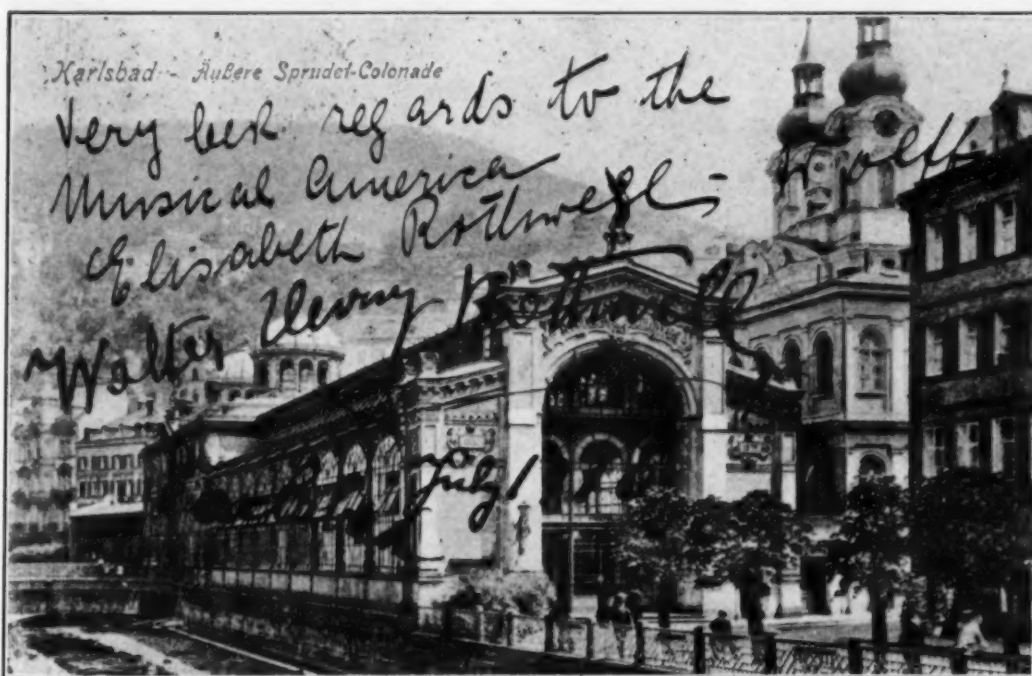 Karlsbad - Äußere Sprudel-Colonade
Very best regards to the
Musical America
Elisabeth Rothwell - Wolff
Walter Henry Rothwell
July 1